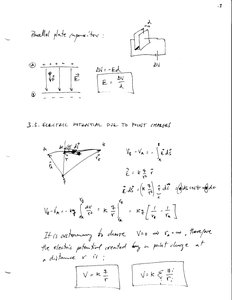 Parallel plate capacitor:
d
A
B
ΔV = -Ed
E = ΔV/d
3.5. ELECTRIC POTENTIAL DUE TO POINT CHARGES
V_B - V_A = -∫ E ds
E = k q/r² r̂
V_B - V_A = -kq ∫ dr/r² = k q/r = kq [1/r_B - 1/r_A]
It is customary to choose V=0 at r_A = ∞, therefore
the electric potential created by a point charge at
a distance r is:
V = k q/r
V = k Σ q_i/r_i